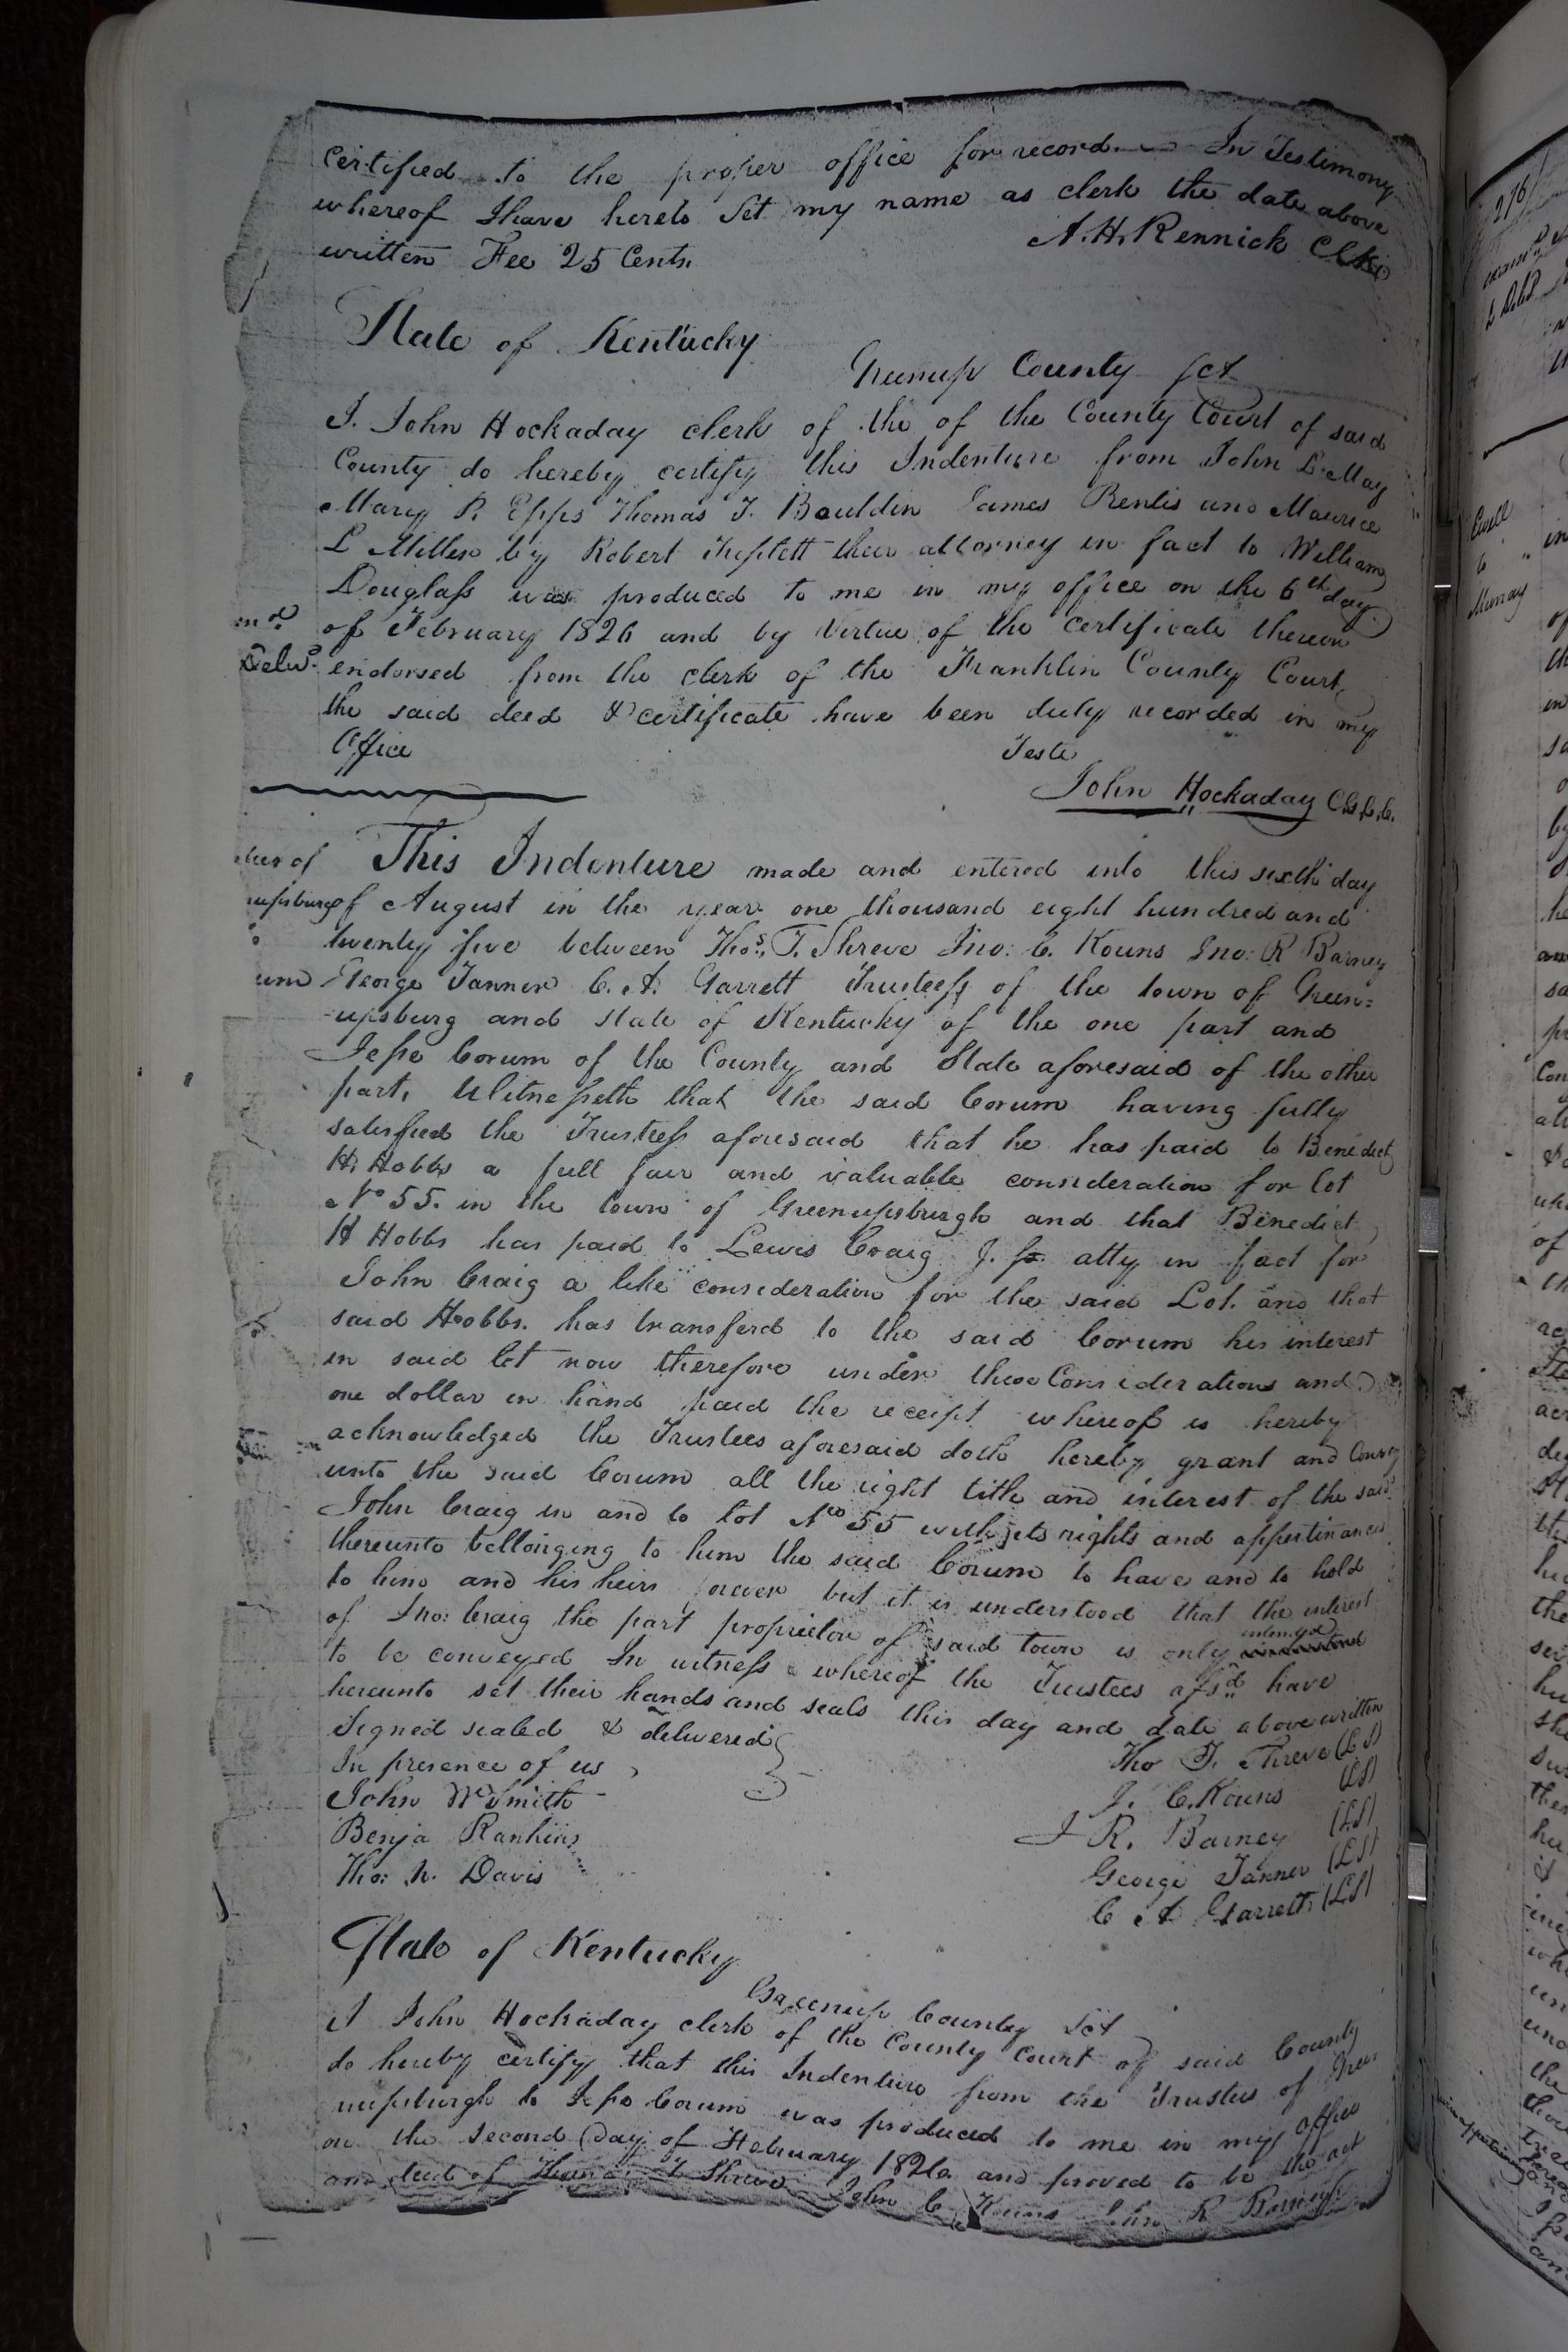 Certified to the proper office for record — In Testimony
whereof I have hereto Set my name as clerk the date above
written Fee 25 Cents
A. H. Rennick Clk
State of Kentucky
Greenup County Sct
I. John Hockaday clerk of the of the County Court of said
County do hereby certify this Indenture from John L. May
Mary P. Epps Thomas T. Bouldin James Rentis and Maurice
L Miller by Robert Triplett their attorney in fact to William
Douglass was produced to me in my office on the 6th day
of February 1826 and by Virtue of the certificate thereon
Delvd endorsed from the clerk of the Franklin County Court
the said deed & certificate have been duly recorded in my
Office
Teste
John Hockaday Clk G.C.C.
This Indenture made and entered into this sixth day
upsburg of August in the year one thousand eight hundred and
twenty five between Thos. T. Shreve Jno: C. Kouns Jno: R Barney
George Tanner C. A. Garrett Trusteess of the town of Green=
upsburg and state of Kentucky of the one part and
Jesse Corum of the County and State aforesaid of the other
part, Witnesseth that the said Corum having fully
satisfied the Trustess aforesaid that he has paid to Benedict
H. Hobbs a full fair and valuable consideration for Lot
No 55. in the town of Greenupsburgh and that Benedict
H Hobbs has paid to Lewis Craig J. atty in fact for
John Craig a like consideration for the said Lot. and that
said Hobbs. has transferd to the said Corum his interest
in said lot now therefore under these Considerations and
one dollar in hand paid the receipt whereof is hereby
acknowledged the Trustees aforesaid doth hereby grant and Convey
unto the said Corum all the right title and interest of the said
John Craig in and to lot No 55 with its rights and appertinances
thereunto bellonging to him the said Corum to have and to hold
to him and his heirs forever but it is understood that the interest
of Jno: Craig the part proprietor of said town is only intended
to be conveyed In witness whereof the Trustees afsd have
hereunto set their hands and seals this day and date above written
Signed sealed & delivered
In presence of us
John W Smith
Benja Rankins
Tho: N. Davis
Tho T. Shreve (LS)
J. C. Kouns (LS)
J R. Barney (LS)
George Tanner (LS)
C A Garrett (LS)
State of Kentucky
Greenup County Sct
I John Hockaday clerk of the County Court of said County
do hereby certify that this Indenture from the Trustees of Green
upsburgh to Jesse Corum was produced to me in my office
on the second Day of February 1826 and proved to be the act
and deed of Thomas T Shreve John C Kouns John R Barney